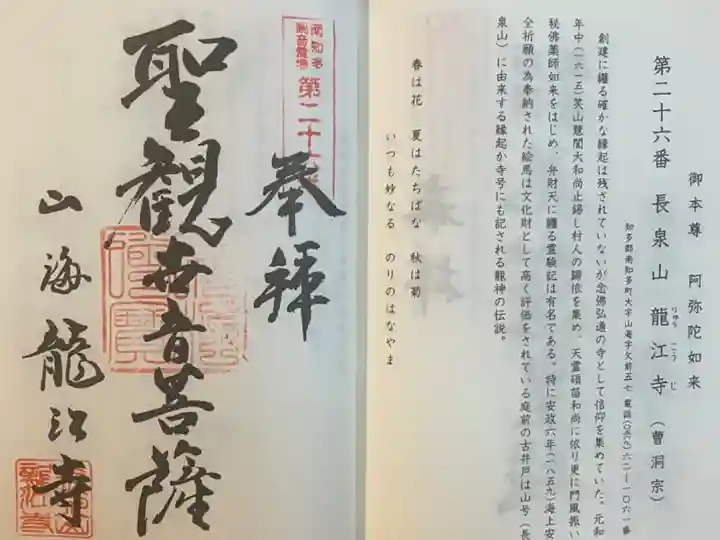 御本尊 阿弥陀如来
第二十六番 長泉山 龍江寺（曹洞宗）
りゅう こう じ
知多郡南知多町大字山海字欠前五七 電話(〇五六九)六二―一〇六一番
創建に纏る確かな縁起は残されていないが念佛弘通の寺として信仰を集めていた。元和
年中(一六一五)笑山慧誾大和尚止錫し村人の歸依を集め、天霊碩苗和尚に依り更に門風振い
秘佛薬師如来をはじめ、弁財天に纏る霊験記は有名である。特に安政六年(一八五九)海上安
全祈願の為奉納された絵馬は文化財として高く評価をされている庭前の古井戸は山号(長
泉山)に由来する縁起か寺号にも記される龍神の伝説。
春は花 夏はたちばな 秋は菊
いつも妙なる のりのはなやま
南知多
観音霊場
第二十六番
奉拝
聖観世音菩薩
山海 龍江寺